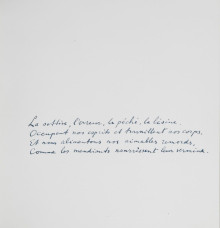 La sottise, l'erreur, le péché, la lésine,
Occupent nos esprits et travaillent nos corps,
Et nous alimentons nos aimables remords,
Comme les mendiants nourrissent leur vermine.